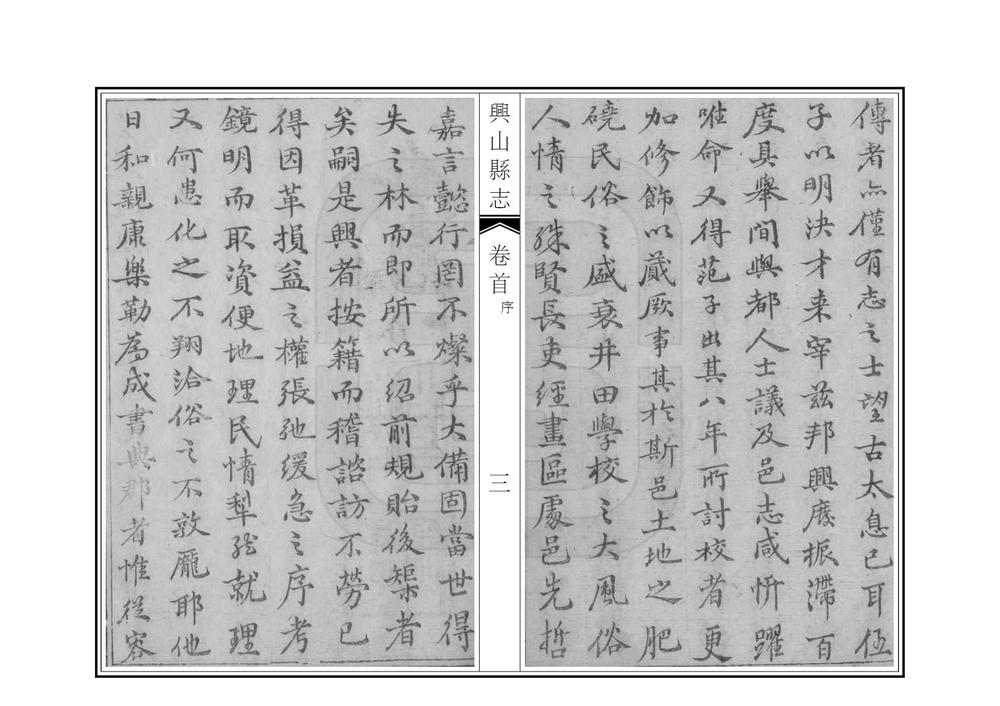 傳者亦僅有志之士望古太息已耳伍
子以明決才来宰兹邦興廢振滯百
度具舉間與都人士議及邑志咸忻躍
唯命又得范子出其八年所討校者更
加修飾以蕆厥事其於斯邑土地之肥
磽民俗之盛衰井田學校之大風俗
人情之殊賢長吏經畫區處邑先哲
興山縣志
卷首
序
三
嘉言懿行罔不燦乎大備固當世得
失之林而即所以紹前規貽後榘者
矣嗣是興者按籍而稽諮訪不勞已
得因革損益之權張弛緩急之序考
鏡明而取資便地理民情犁然就理
又何患化之不翔洽俗之不敦龐耶他
日和親康樂勒為成書典郡者惟從容